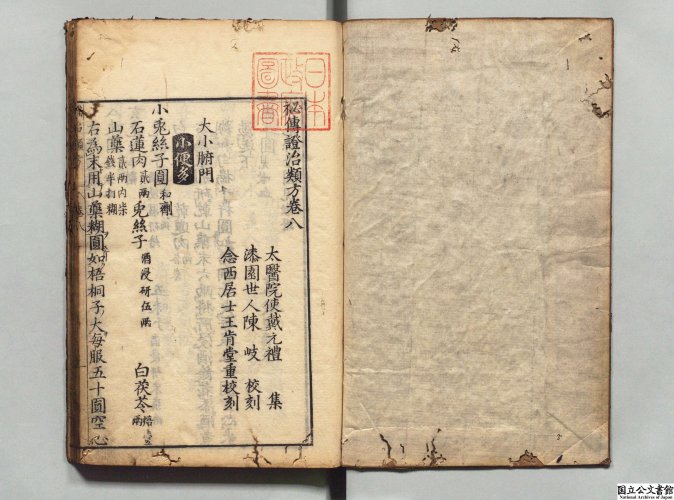 祕傳證治類方卷八
太醫院使戴元禮　集
漆園世人陳岐　校刻
念西居士王肯堂重校刻
大小腑門
小便多
小兎絲子圓和劑
石蓮肉貳兩兎絲子酒浸研伍兩　白茯苓焙壹兩
山藥貳兩內柒錢半打糊
右爲末用山藥糊圓如梧桐子大每服五十圓空心
日本政府圖書
国立公文書館
National Archives of Japan